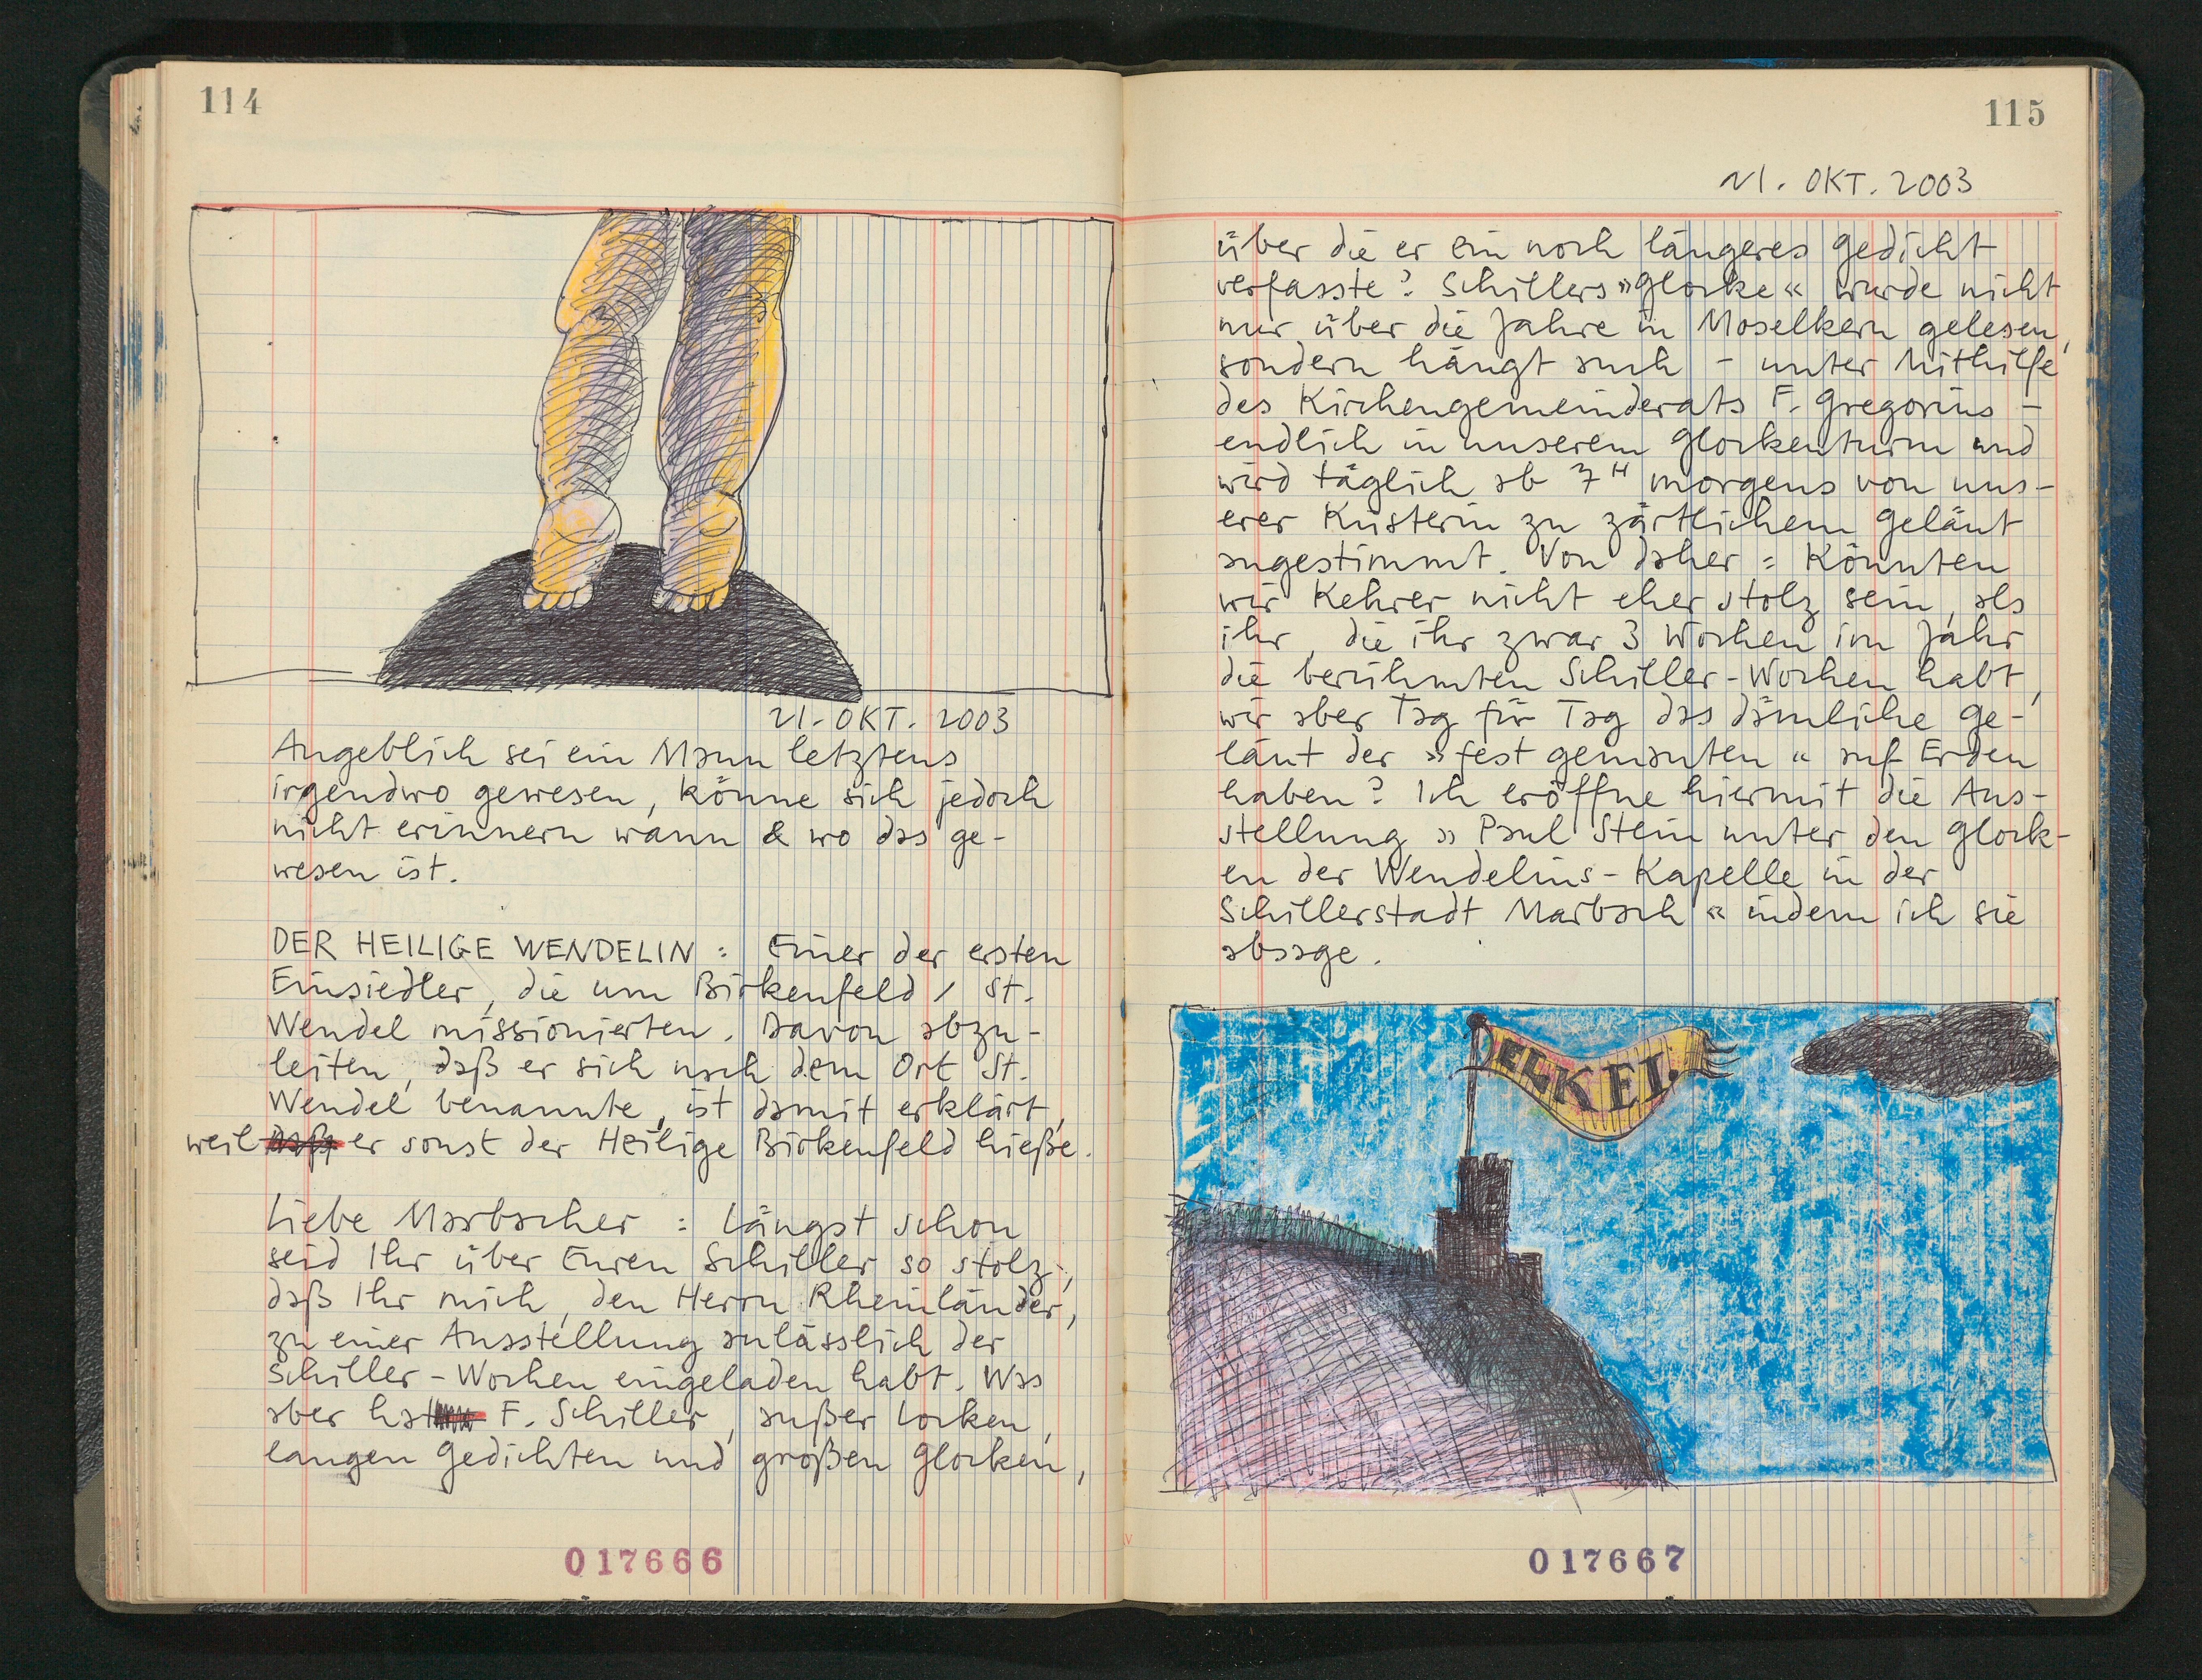 114
21. OKT. 2003
Angeblich sei ein Mann letztens
irgendwo gewesen, könne sich jedoch
nicht erinnern wann & wo das ge-
wesen ist.
DER HEILIGE WENDELIN : Einer der ersten
Einsiedler, die um Birkenfeld / St.
Wendel missionierten. Davon abzu-
leiten, daß er sich nach dem Ort St.
Wendel benannte, ist damit erklärt,
weil er sonst der Heilige Birkenfeld hieße.
Liebe Marbacher : Längst schon
seid Ihr über Euren Schiller so stolz,
daß Ihr mich, den Herrn Rheinländer,
zu einer Ausstellung anlässlich der
Schiller-Wochen eingeladen habt. Was
aber hat F. Schiller, außer Locken,
langen Gedichten und großen Glocken,
017666
115
21. OKT. 2003
über die er ein noch längeres Gedicht
verfasste? Schillers »Glocke« wurde nicht
nur über die Jahre in Moselkern gelesen,
sondern hängt auch – unter Mithilfe
des Kirchengemeinderats F. Gregorius –
endlich in unserem Glockenturm und
wird täglich ab 7H morgens von uns-
erer Küsterin zu zärtlichem Geläut
angestimmt. Von daher : Könnten
wir Kehrer nicht eher stolz sein, als
ihr, die ihr zwar 3 Wochen im Jahr
die berühmten Schiller-Wochen habt,
wir aber Tag für Tag das dämliche Ge-
läut der »fest gemauten« auf Erden
haben? Ich eröffne hiermit die Aus-
stellung »Paul Stein unter den Glock-
en der Wendelins-Kapelle in der
Schillerstadt Marbach« indem ich sie
absage.
DELKEI.
017667